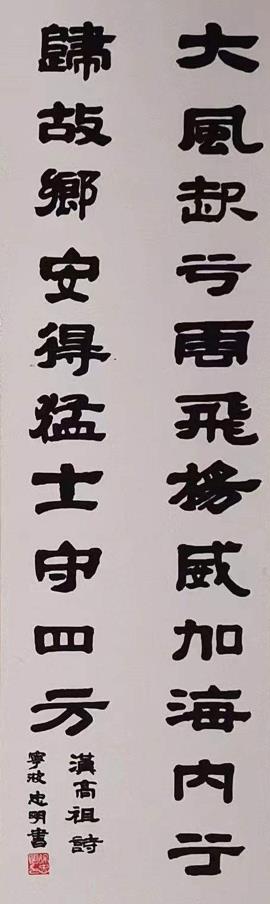 大風起兮雨飛揚威加海內兮
歸故鄉安得猛士守四方
漢高祖詩
寧波忠明書